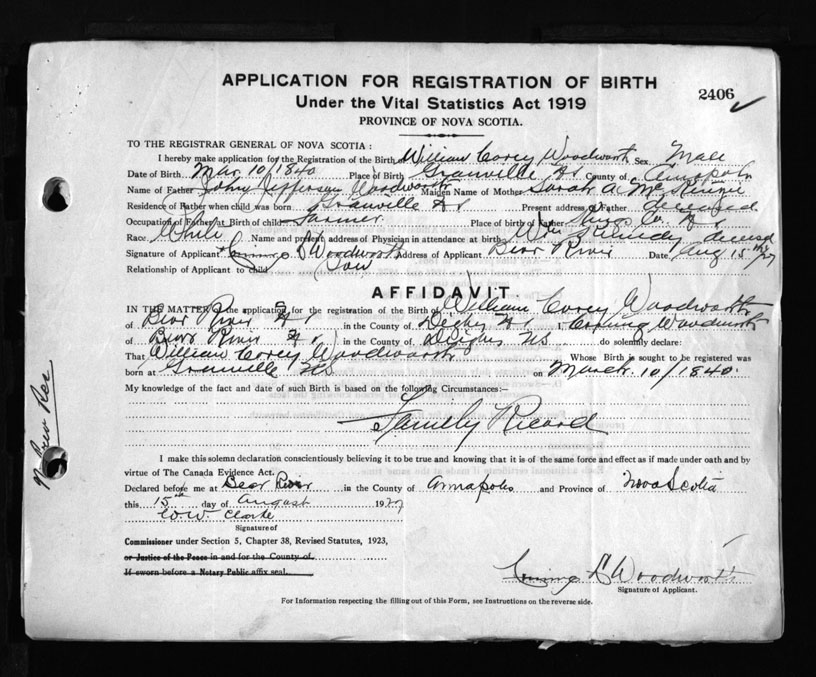 APPLICATION FOR REGISTRATION OF BIRTH
2406
Under the Vital Statistics Act 1919
PROVINCE OF NOVA SCOTIA.
TO THE REGISTRAR GENERAL OF NOVA SCOTIA :
I hereby make application for the Registration of the Birth of William Corey Woodworth Sex Male
Date of Birth Mar. 10/1840 Place of Birth Granville County of Annapolis
Name of Father John Jefferson Woodworth Maiden Name of Mother Sarah A McKenzie
Residence of Father when child was born Granville Present address of Father deceased
Occupation of Father at Birth of child Farmer Place of birth of Father Kings Co.
Race White Name and present address of Physician in attendance at birth Kennedy deceased
Signature of Applicant Woodworth Address of Applicant Bear River Date Aug 15th/27
Relationship of Applicant to child Son
AFFIDAVIT
IN THE MATTER of the application for the registration of the Birth of William Corey Woodworth
of Bear River in the County of Digby I, Woodworth
of Bear River in the County of Digby NS do solemnly declare:
That William Corey Woodworth Whose Birth is sought to be registered was
born at Granville NS on March. 10/1840.
My knowledge of the fact and date of such Birth is based on the following Circumstances:—
Family Record
I make this solemn declaration conscientiously believing it to be true and knowing that it is of the same force and effect as if made under oath and by
virtue of The Canada Evidence Act.
Declared before me at Bear River in the County of Annapolis and Province of Nova Scotia
this 15th day of August 1927
W.W. Clarke
Signature of
Commissioner under Section 5, Chapter 38, Revised Statutes, 1923,
or Justice of the Peace in and for the County of
If sworn before a Notary Public affix seal.
Woodworth
Signature of Applicant.
For Information respecting the filling out of this Form, see Instructions on the reverse side.